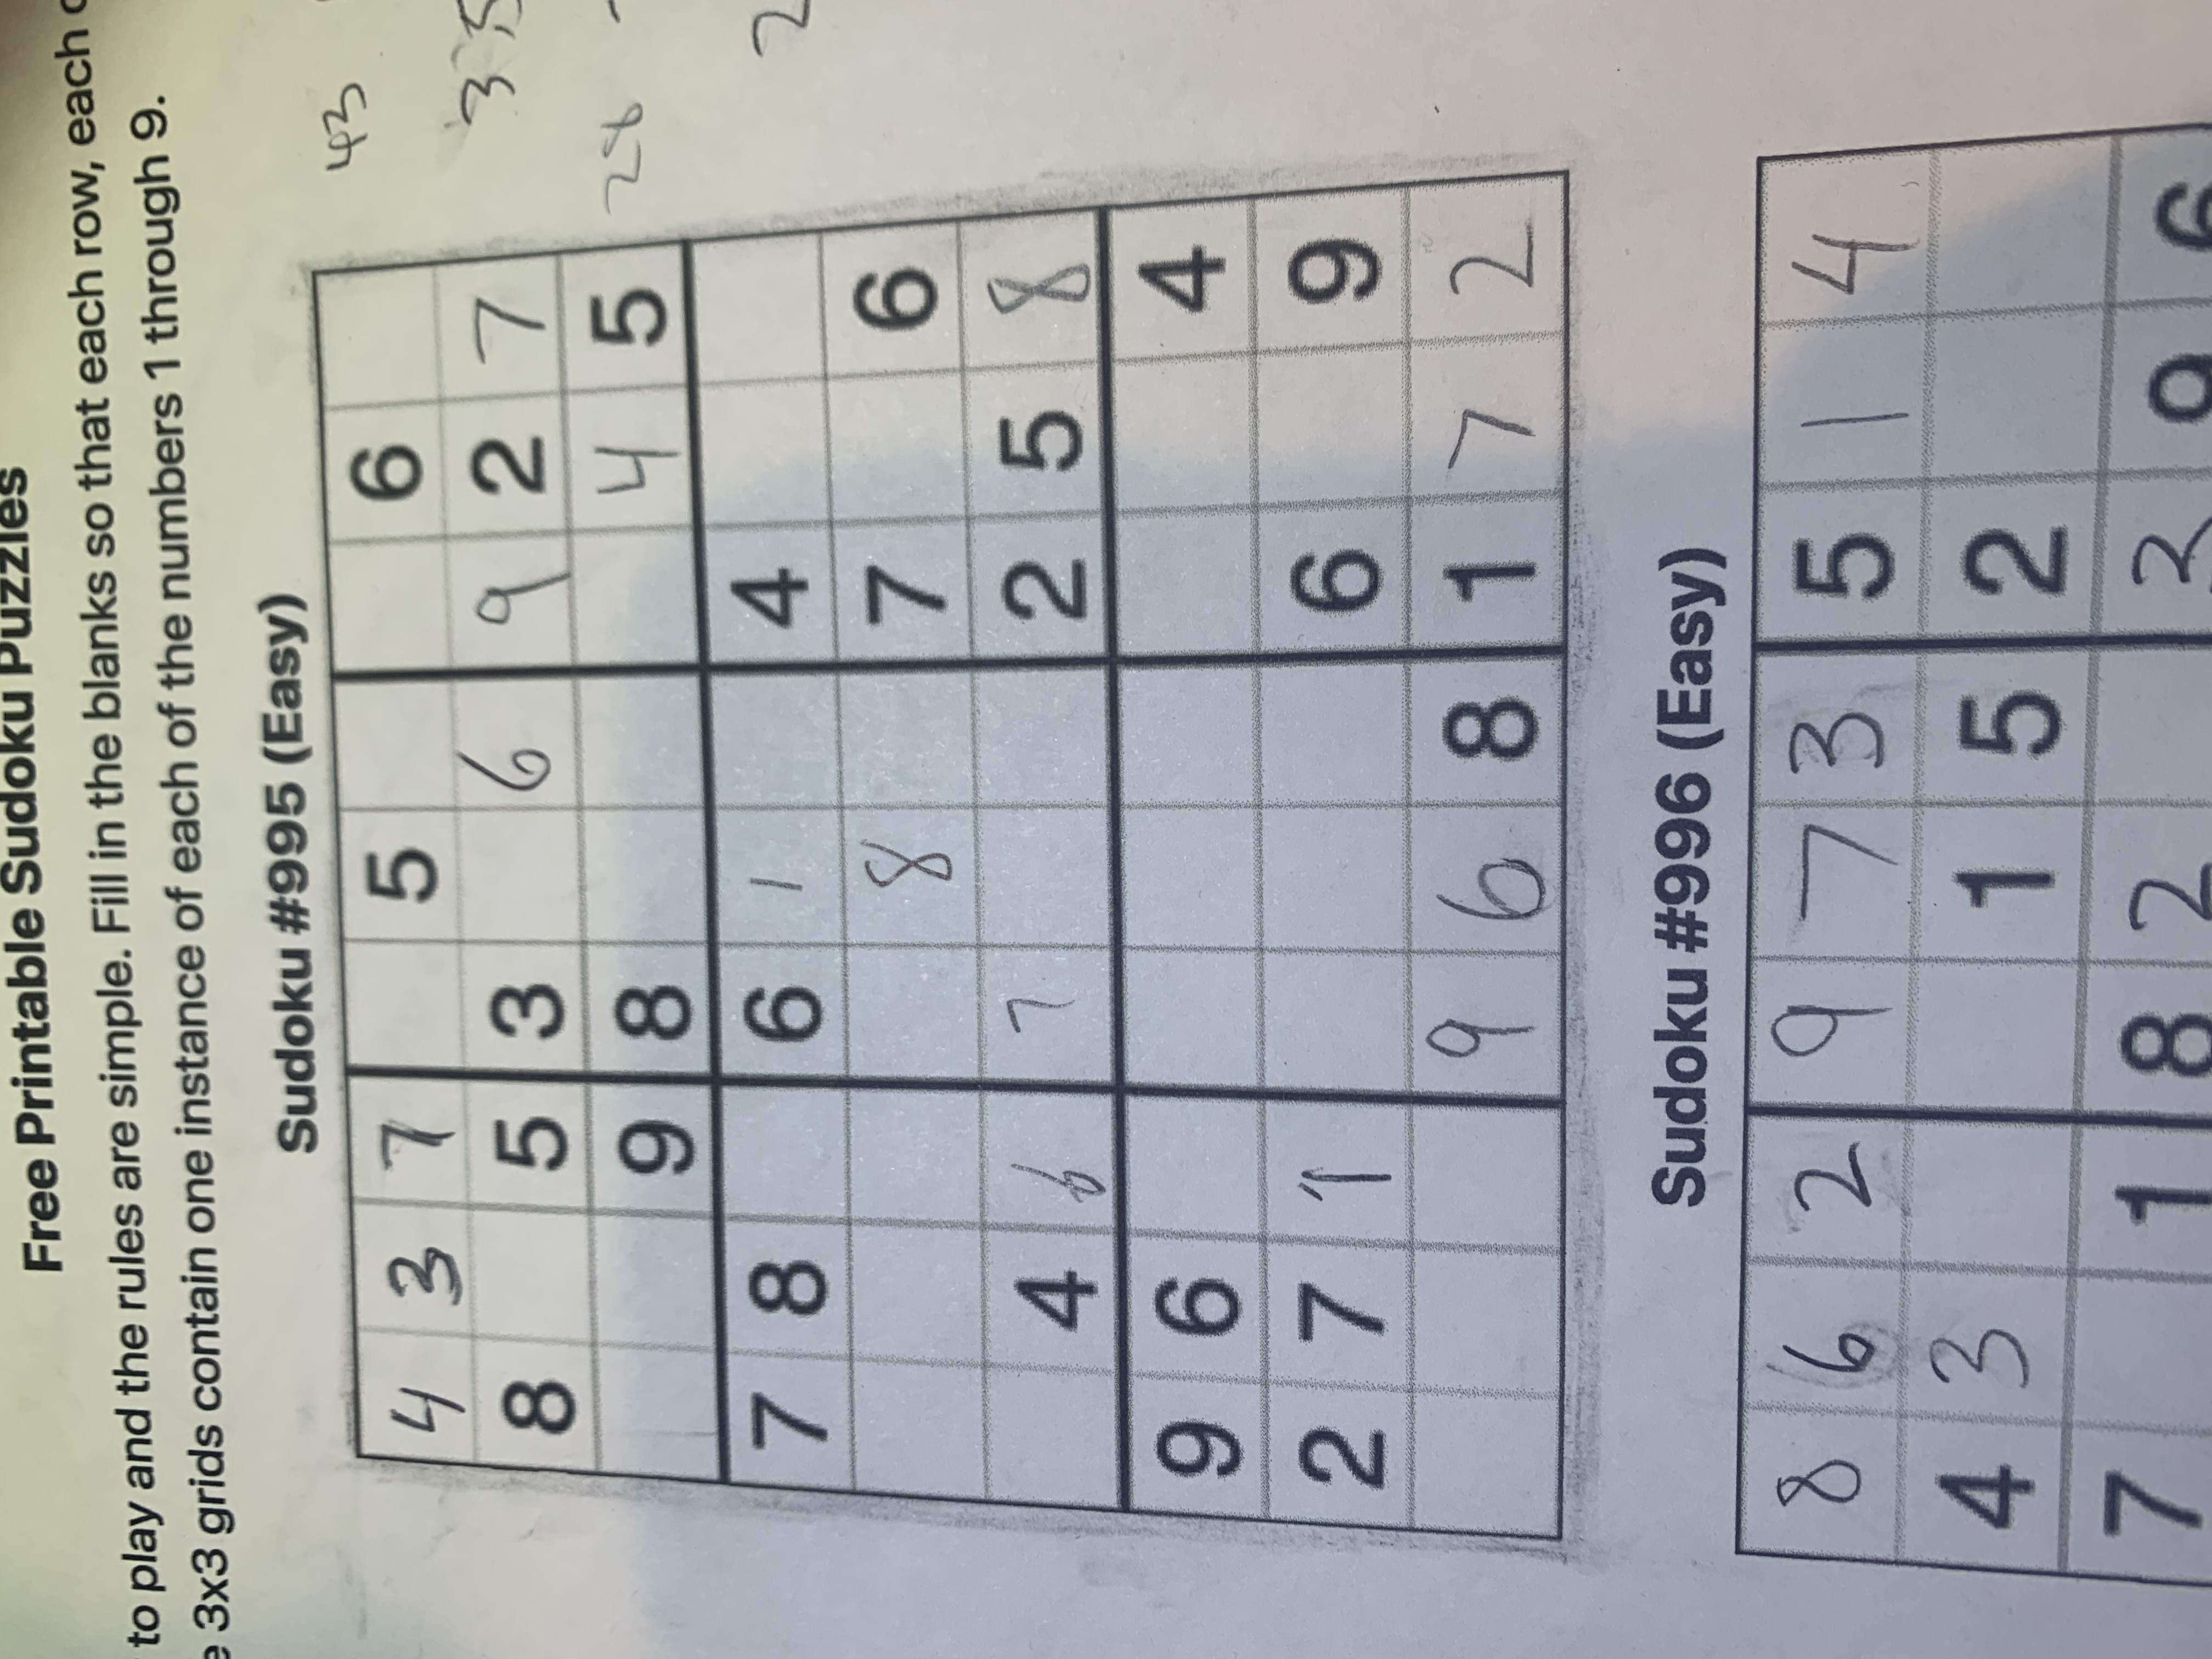 Free Printable Sudoku Puzzles
to play and the rules are simple. Fill in the blanks so that each row, each
3x3 grids contain one instance of each of the numbers 1 through 9.
Sudoku #995 (Easy)
4 3 7 5 6
43
8 5 3 6 9 2 7
35
9 8 4 5
28
7 8 6 1 4
2
8 7 6
4 6 7 2 5 8
9 6 4
2 7 1 6 9
9 6 8 1 7 2
Sudoku #996 (Easy)
8 6 2 9 7 3 5 1 4
4 3 1 5 2
7 1 8 2 3 9 6